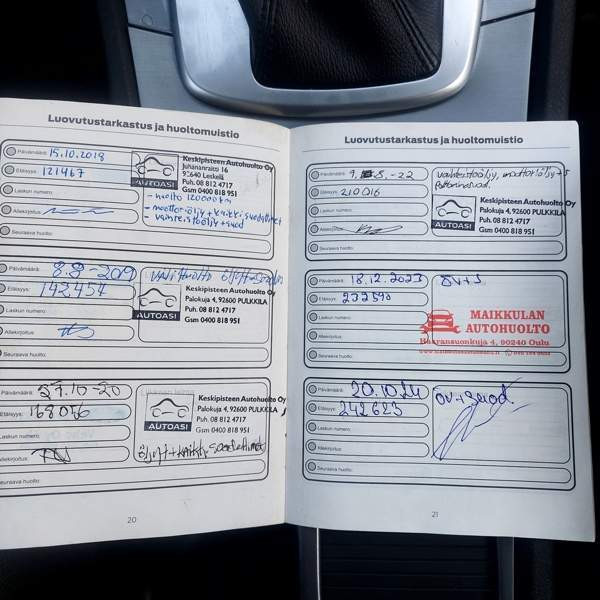 Luovutustarkastus ja huoltomuistio
Päivämäärä: 15.10.2018
Etäisyys: 121467
Laskun numero:
Allekirjoitus:
Seuraava huolto:
AUTOASI
Keskipisteen Autohuolto Oy
Juhananraitti 16
Puh. 08 812 4717
Gsm 0400 818 951
- huolto 120000 km
- moottoriöljy + kaikki suodattimet
- vaihteistoöljy + suod
Päivämäärä: 8.8-2019
Etäisyys: 142457
Laskun numero:
Allekirjoitus:
Seuraava huolto:
AUTOASI
Keskipisteen Autohuolto Oy
Palokuja 4, 92600 PULKKILA
Puh. 08 812 4717
Gsm 0400 818 951
Päivämäärä: 27.10-20
Etäisyys: 168076
Laskun numero:
Allekirjoitus:
Seuraava huolto:
AUTOASI
Keskipisteen Autohuolto Oy
Palokuja 4, 92600 PULKKILA
Gsm 0400 818 951
20
Luovutustarkastus ja huoltomuistio
Päivämäärä:
Etäisyys: 210016
Laskun numero:
Allekirjoitus:
Seuraava huolto:
AUTOASI
Keskipisteen Autohuolto Oy
Palokuja 4, 92600 PULKKILA
Puh. 08 812 4717
Gsm 0400 818 951
Päivämäärä: 18.12.2023
Etäisyys: 232590
Laskun numero:
Allekirjoitus:
Seuraava huolto:
ÖV+S
MAIKKULAN
AUTOHUOLTO
4, 90240 Oulu
Päivämäärä: 20.10.24
Etäisyys: 242625
Laskun numero:
Allekirjoitus:
Seuraava huolto:
öv+suod.
21